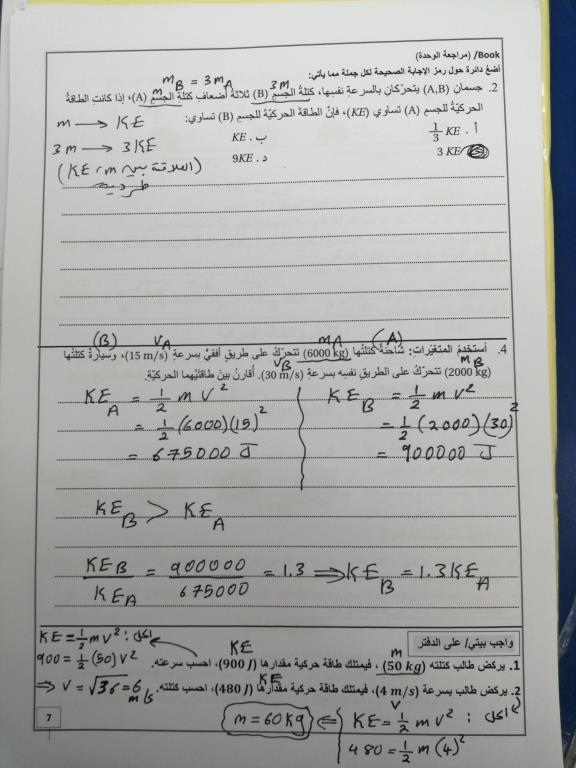 Book/ (مراجعة الوحدة)
أضعُ دائرة حول رمز الإجابة الصحيحة لكل جملة مما يأتي:
m_B = 3m_A
m 3m
2. جسمانِ (A,B) يتحرّكانِ بالسرعةِ نفسِها، كتلةُ الجسمِ (B) ثلاثةُ أضعافِ كتلةِ الجسمِ (A)، إذا كانتِ الطاقةُ
الحركيّةُ للجسمِ (A) تساوي (KE)، فإنَّ الطاقةَ الحركيّةَ للجسمِ (B) تساوي:
m → KE
أ . 1/3 KE
ب . KE
3m → 3KE
3 KE
د . 9KE
(العلاقة بين KE، m
طردية)
(B) v_A m_A (A)
4. أستخدمُ المتغيّراتِ: شاحنةٌ كتلتُها (6000 kg) تتحرّكُ على طريقٍ أفقيٍّ بسرعةِ (15 m/s)، وسيارةٌ كتلتُها
v_B m_B
(2000 kg) تتحرّكُ على الطريقِ نفسِه بسرعةِ (30 m/s). أُقارنُ بينَ طاقتَيْهِما الحركيّةِ.
KE_A = 1/2 m v²
= 1/2 (6000)(15)²
= 675000 J
KE_B = 1/2 m v²
= 1/2 (2000)(30)²
= 900000 J
KE_B > KE_A
KE_B / KE_A = 900000 / 675000 = 1.3 ⟹ KE_B = 1.3 KE_A
واجب بيتي/ على الدفتر
KE m
1. يركض طالب كتلته (50 kg) ، فيمتلك طاقة حركية مقدارها (900 J)، احسب سرعته.
الحل: KE = 1/2 m v²
900 = 1/2 (50) v²
⟹ v = √36 = 6 m/s
KE
2. يركض طالب بسرعة (4 m/s)، فيمتلك طاقة حركية مقدارها (480 J)، احسب كتلته.
v
الحل: KE = 1/2 m v²
480 = 1/2 m (4)²
⟸ m = 60 kg
7